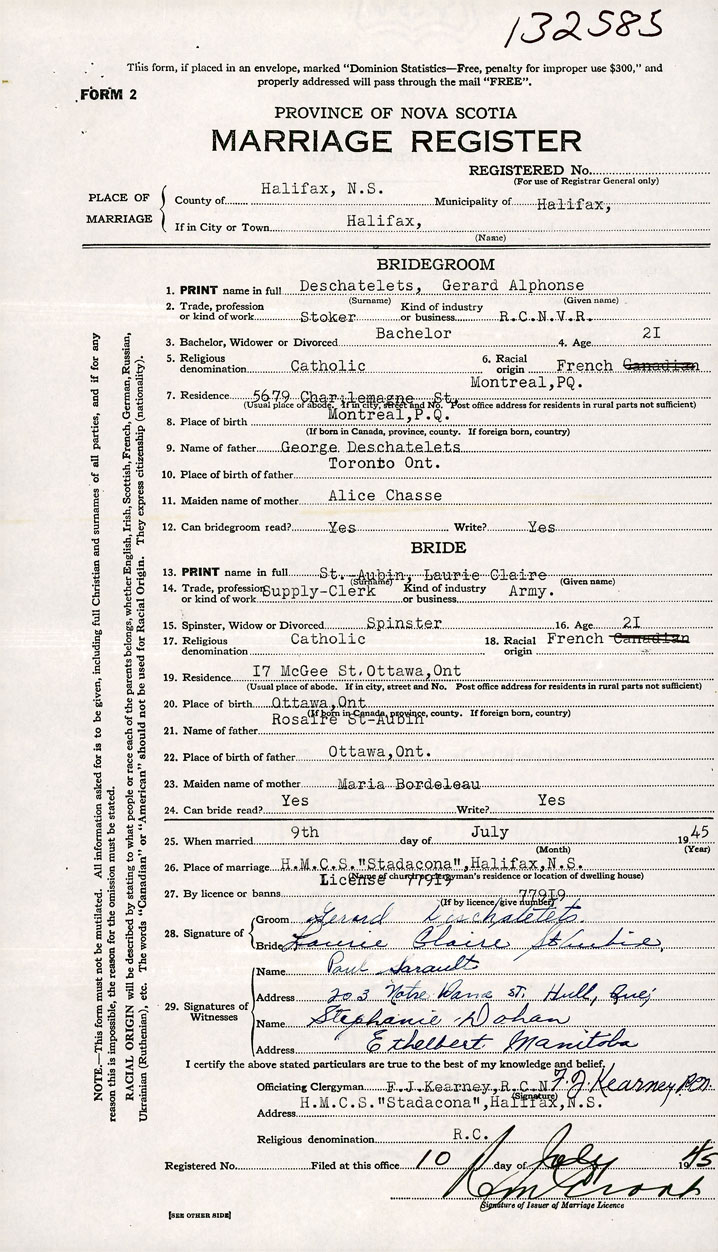 132585
This form, if placed in an envelope, marked "Dominion Statistics—Free, penalty for improper use $300," and
properly addressed will pass through the mail "FREE".
FORM 2
PROVINCE OF NOVA SCOTIA
MARRIAGE REGISTER
REGISTERED No.
(For use of Registrar General only)
PLACE OF MARRIAGE
County of Halifax, N.S. Municipality of Halifax,
If in City or Town Halifax,
(Name)
BRIDEGROOM
1. PRINT name in full Deschatelets, Gerard Alphonse
(Surname) (Given name)
2. Trade, profession or kind of work Stoker Kind of industry or business R.C.N.V.R.
3. Bachelor, Widower or Divorced Bachelor 4. Age 2I
5. Religious denomination Catholic 6. Racial origin French Canadian
Montreal,PQ.
7. Residence 5679 Charlemagne St.
(Usual place of abode. If in city, street and No. Post office address for residents in rural parts not sufficient)
8. Place of birth Montreal,P.Q.
(If born in Canada, province, county. If foreign born, country)
9. Name of father George Deschatelets
10. Place of birth of father Toronto Ont.
11. Maiden name of mother Alice Chasse
12. Can bridegroom read? Yes Write? Yes
BRIDE
13. PRINT name in full St.-Aubin, Laurie Claire
(Surname) (Given name)
14. Trade, profession or kind of work Supply-Clerk Kind of industry or business Army.
15. Spinster, Widow or Divorced Spinster 16. Age 2I
17. Religious denomination Catholic 18. Racial origin French Canadian
19. Residence I7 McGee St,Ottawa,Ont
(Usual place of abode. If in city, street and No. Post office address for residents in rural parts not sufficient)
20. Place of birth Ottawa,Ont
(If born in Canada, province, county. If foreign born, country)
21. Name of father Rosaire St-Aubin
22. Place of birth of father Ottawa,Ont.
23. Maiden name of mother Maria Bordeleau
24. Can bride read? Yes Write? Yes
25. When married 9th day of July 1945
(Month) (Year)
26. Place of marriage H.M.C.S."Stadacona",Halifax,N.S.
(Name of church or clergyman's residence or location of dwelling house)
27. By licence or banns License 779I9 779I9
(If by licence give number)
28. Signature of
Groom Gerard Deschatelets
Bride Laurie Claire St Aubin
29. Signatures of Witnesses
Name Paul Sarault
Address 203 Notre Dame St. Hull, Que;
Name Stephanie Dohan
Address Ethelbert Manitoba
I certify the above stated particulars are true to the best of my knowledge and belief.
Officiating Clergyman F.J.Kearney,R.C.N F. J. Kearney
(Signature)
Address H.M.C.S."Stadacona",Halifax,N.S.
Religious denomination R.C.
Registered No. Filed at this office 10 day of July 1945
Signature of Issuer of Marriage Licence
[SEE OTHER SIDE]
NOTE.—This form must not be mutilated. All information asked for is to be given, including full Christian and surnames of all parties, and if for any
reason this is impossible, the reason for the omission must be stated.
RACIAL ORIGIN will be described by stating to what people or race each of the parents belongs, whether English, Irish, Scottish, French, German, Russian,
Ukrainian (Ruthenian), etc. The words "Canadian" or "American" should not be used for Racial Origin. They express citizenship (nationality).